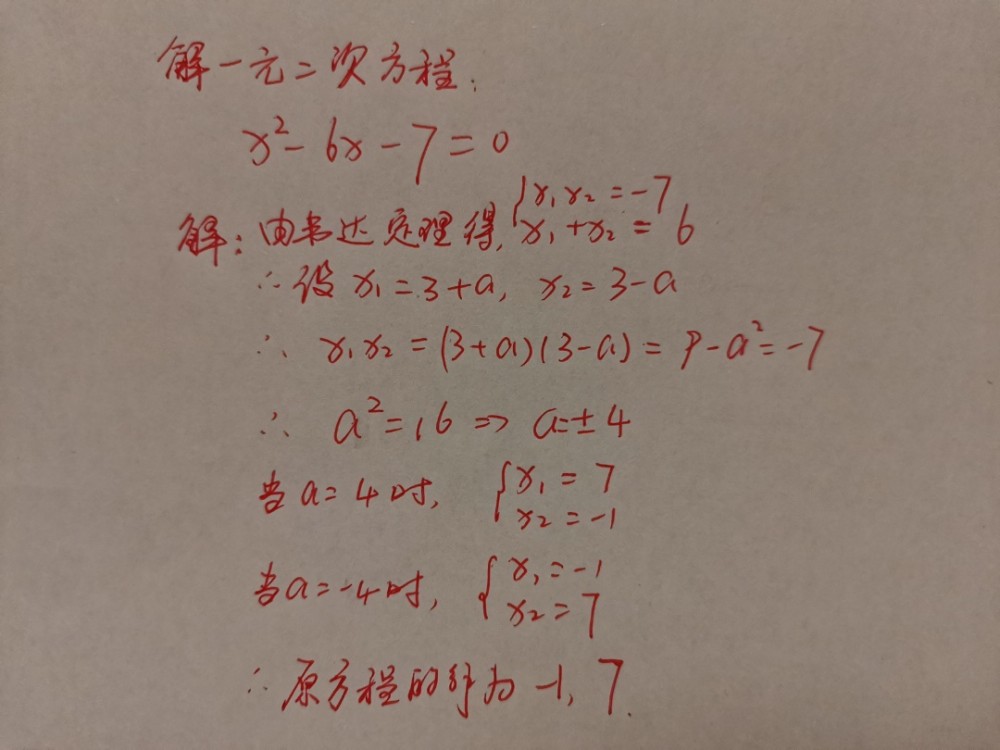 解一元二次方程:
x²-6x-7=0
解:由韦达定理得, {x₁x₂=-7
x₁+x₂=6
∴设x₁=3+a, x₂=3-a
∴ x₁x₂=(3+a)(3-a)=9-a²=-7
∴ a²=16 ⇒ a=±4
当a=4时, {x₁=7
x₂=-1
当a=-4时, {x₁=-1
x₂=7
∴原方程的解为-1, 7.